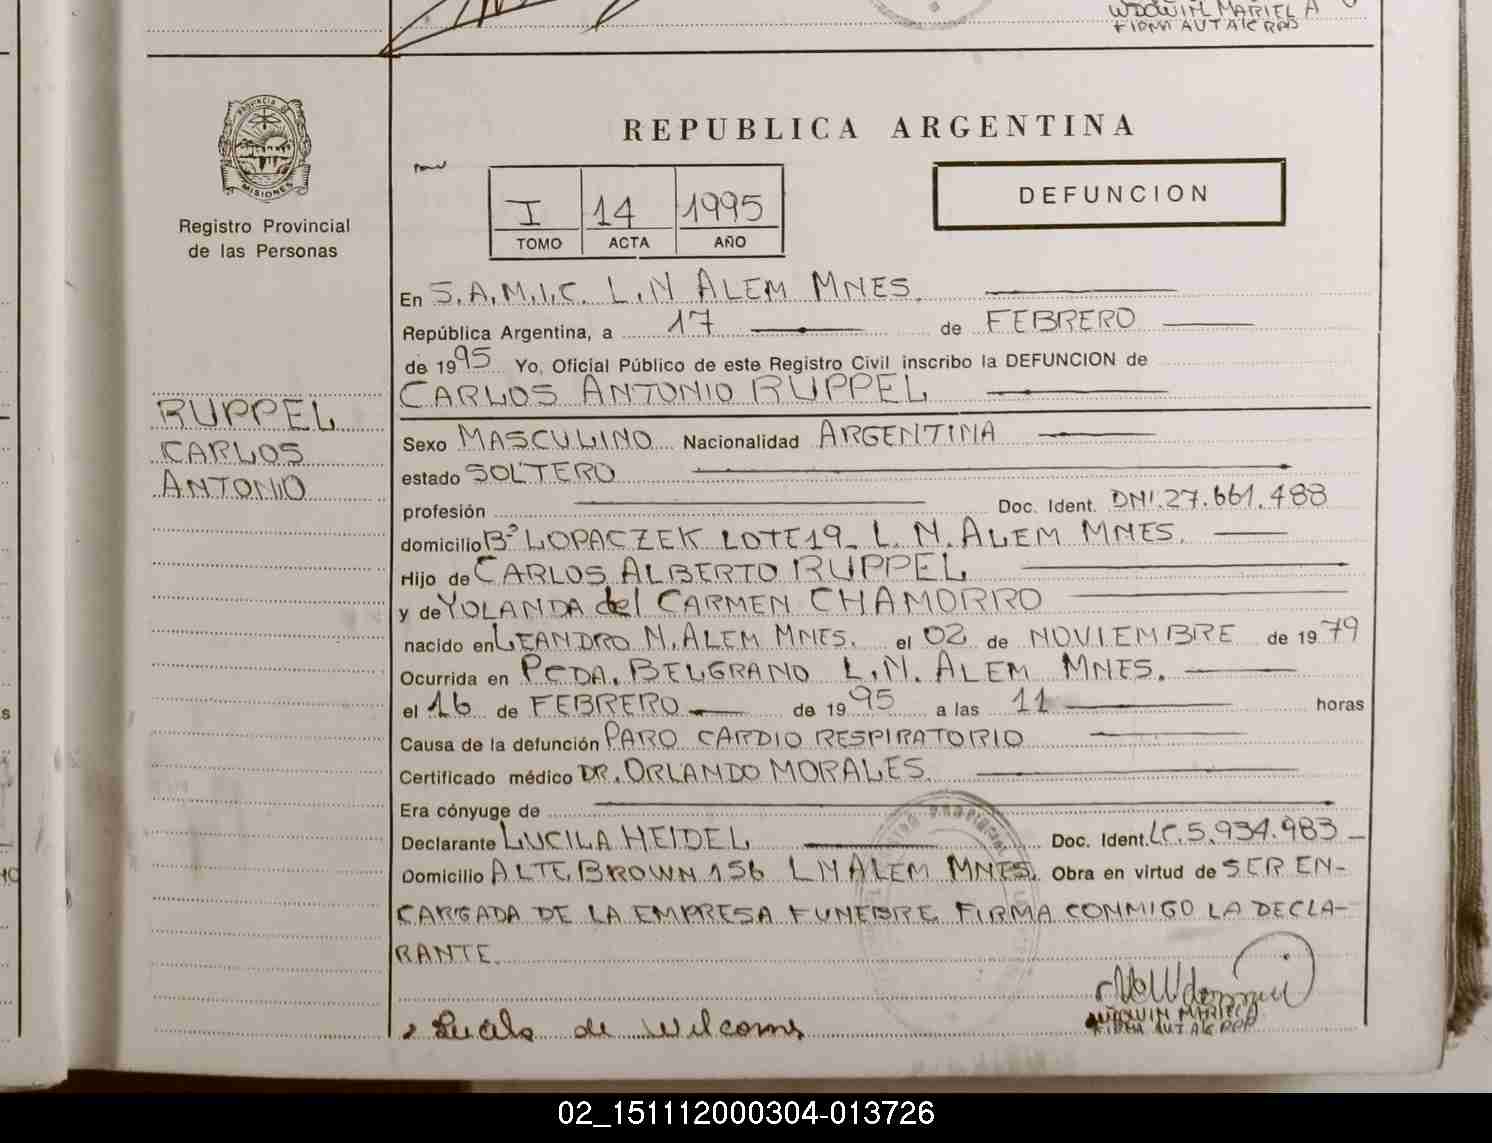 WDOWIN MARIEL A
FIRMA AUT A/C RPP
PROVINCIA DE
MISIONES
Registro Provincial
de las Personas
REPUBLICA ARGENTINA
DEFUNCION
I 14 1995
TOMO ACTA AÑO
En S.A.M.I.C. L.N ALEM MNES.
República Argentina, a 17 de FEBRERO
de 1995 Yo, Oficial Público de este Registro Civil inscribo la DEFUNCION de
CARLOS ANTONIO RUPPEL
RUPPEL
CARLOS
ANTONIO
Sexo MASCULINO Nacionalidad ARGENTINA
estado SOLTERO
profesión Doc. Ident. DNI.27.661.488
domicilio Bº LOPACZEK LOTE 19_ L. N. ALEM MNES.
Hijo de CARLOS ALBERTO RUPPEL
y de YOLANDA del CARMEN CHAMORRO
nacido en LEANDRO N. ALEM MNES. el 02 de NOVIEMBRE de 1979
Ocurrida en PCDA. BELGRANO L.N. ALEM MNES.
el 16 de FEBRERO de 1995 a las 11 horas
Causa de la defunción PARO CARDIO RESPIRATORIO
Certificado médico DR. ORLANDO MORALES.
Era cónyuge de
Declarante LUCILA HEIDEL Doc. Ident. LC.5.934.983
Domicilio ALTE. BROWN 156 LN ALEM MNES. Obra en virtud de SER EN-
CARGADA DE LA EMPRESA FUNEBRE. FIRMA CONMIGO LA DECLA-
RANTE.
Lucila de
WDOWIN MARIEL A
FIRMA AUT A/C RPP
02_151112000304-013726